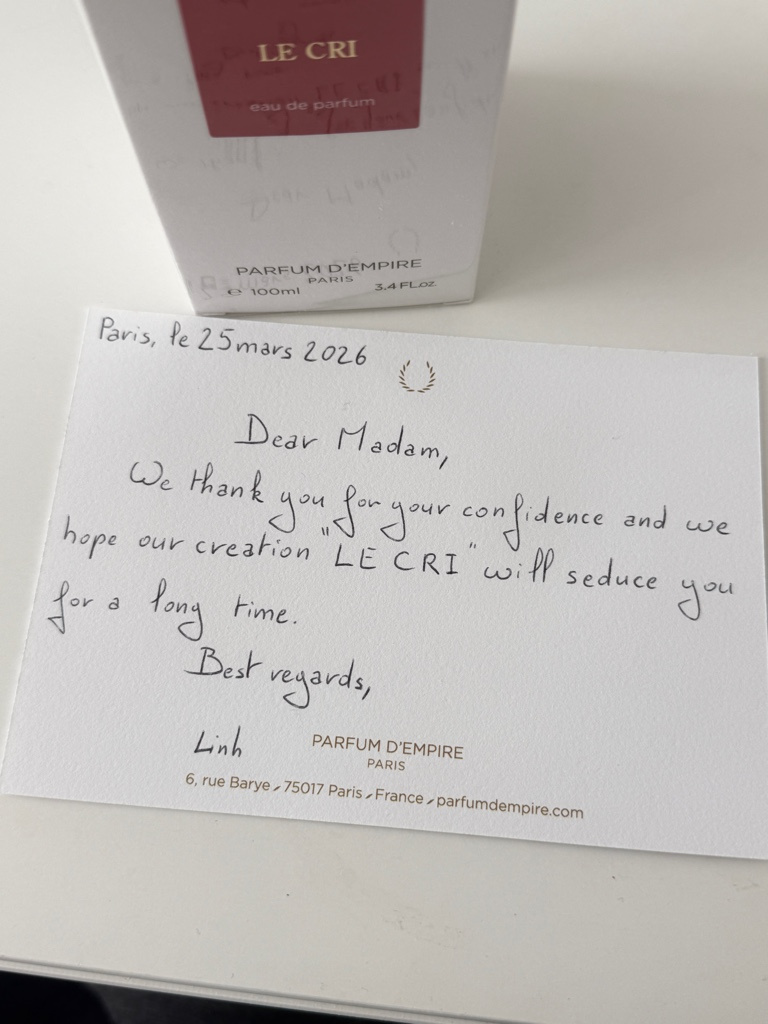 LE CRI
eau de parfum
PARFUM D'EMPIRE
PARIS
e 100ml 3.4 FL oz
Paris, le 25 mars 2026
Dear Madam,
We thank you for your confidence and we
hope our creation "LE CRI" will seduce you
for a long time.
Best regards,
Linh
PARFUM D'EMPIRE
PARIS
6, rue Barye - 75017 Paris - France - parfumdempire.com